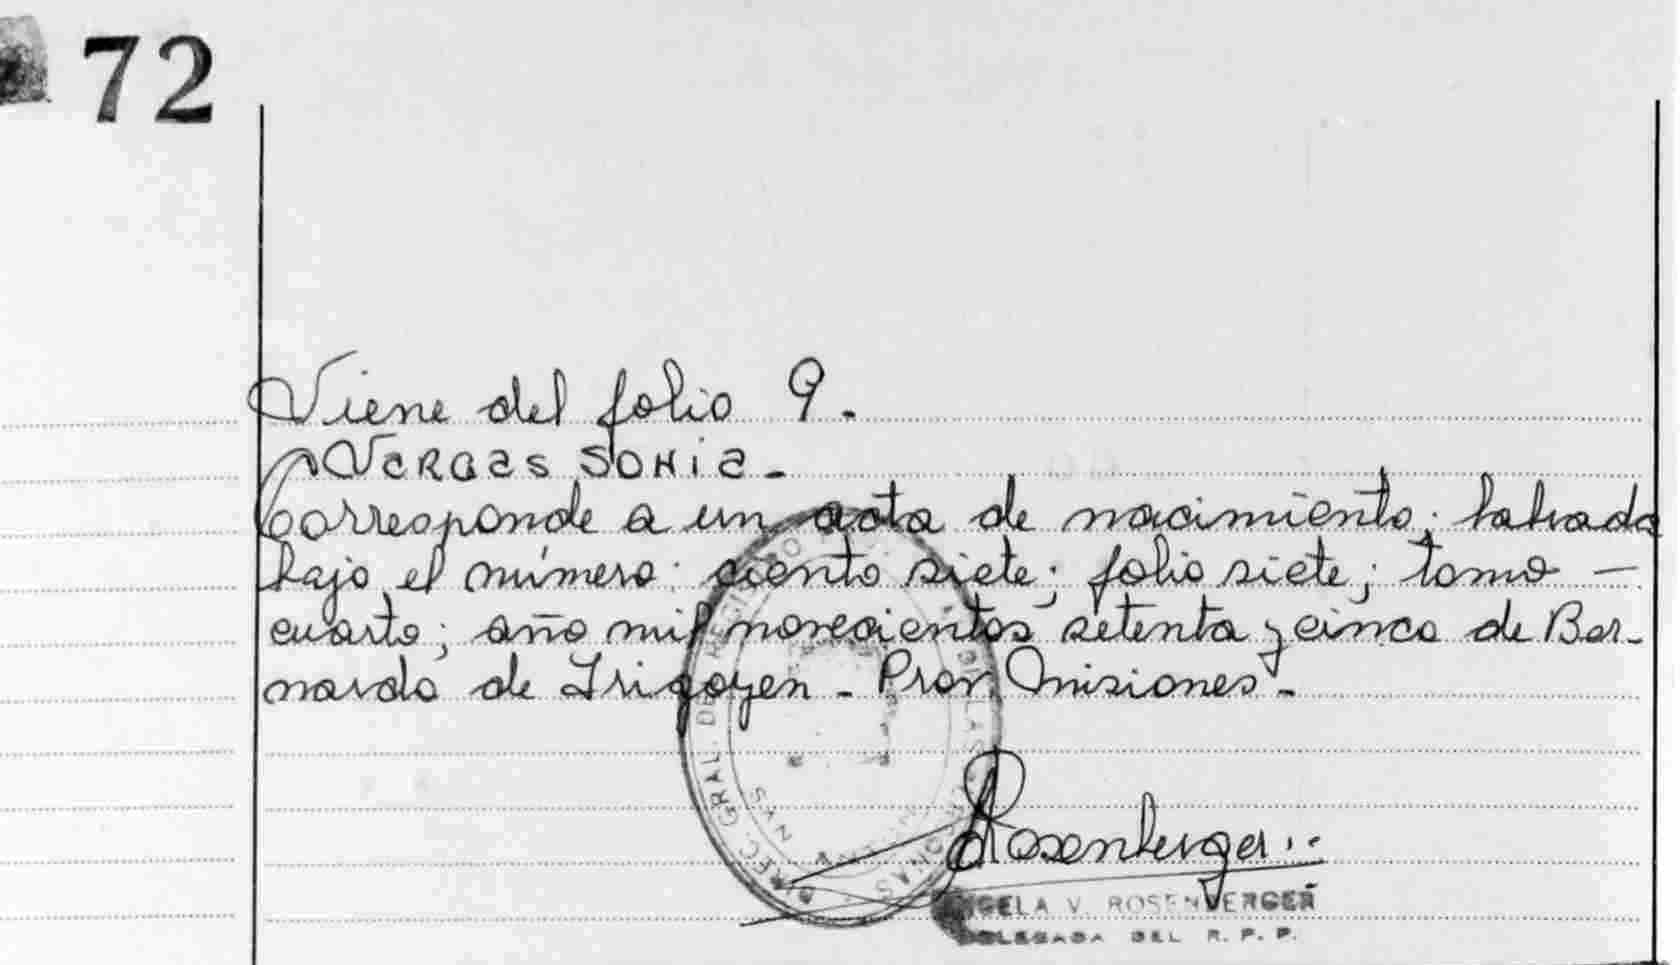 72
Viene del folio 9.
VERGAS SONIA-
Corresponde a un acta de nacimiento; labrada
bajo el número: ciento siete; folio siete; tomo —
cuarto; año mil novecientos setenta y cinco de Ber-
nardo de Irigoyen - Prov. Misiones-
DIREC. GRAL. DEL REGISTRO DE LAS PERSONAS
Rosenberger
ANGELA V. ROSENBERGER
DELEGADA DEL R. P. P.